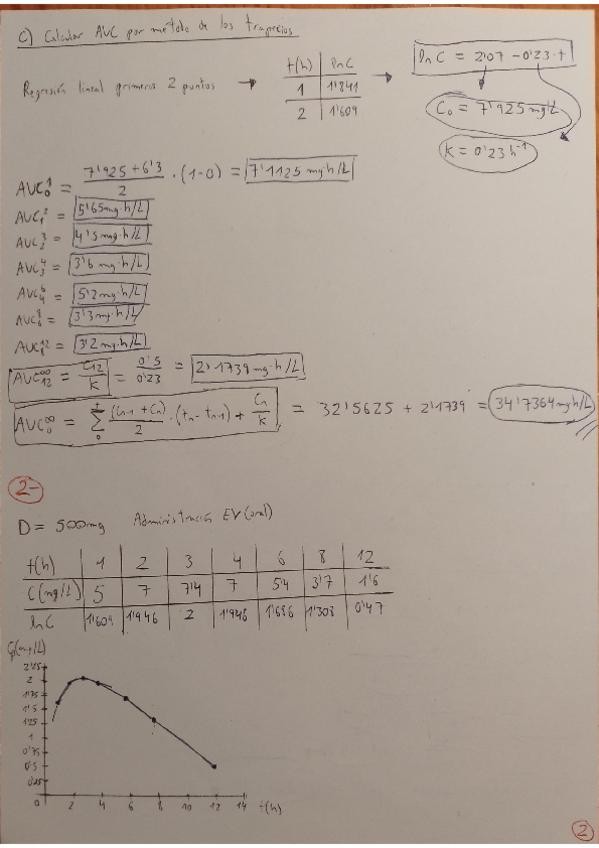 C) Calcular AUC por método de los trapecios
Regresión lineal primeros 2 puntos → t(h) lnC → lnC = 2'07 - 0'23·t
1 1'841
2 1'609
C₀ = 7'925 mg/L
K = 0'23 h⁻¹
AUC₀¹ = (7'925 + 6'3)/2 · (1-0) = 7'1125 mg·h/L
AUC₁² = 5'65 mg·h/L
AUC₂³ = 4'5 mg·h/L
AUC₃⁴ = 3'6 mg·h/L
AUC₄⁶ = 5'2 mg·h/L
AUC₆⁸ = 3'3 mg·h/L
AUC₈¹² = 3'2 mg·h/L
AUC₁₂^∞ = C₁₂/K = 0'5/0'23 = 2'1739 mg·h/L
AUC₀^∞ = Σ₀^t (Cn-1 + Cn)/2 · (tn - tn-1) + Cn/K = 32'5625 + 2'1739 = 34'7364 mg·h/L
2-
D = 500mg Administración EV (oral)
t(h) 1 2 3 4 6 8 12
C(mg/L) 5 7 7'4 7 5'4 3'7 1'6
lnC 1'609 1'946 2 1'946 1'686 1'308 0'47
Cp(mg/L)
2'25
2
1'75
1'5
1'25
1
0'75
0'5
0'25
0 2 4 6 8 10 12 14 t(h)
2